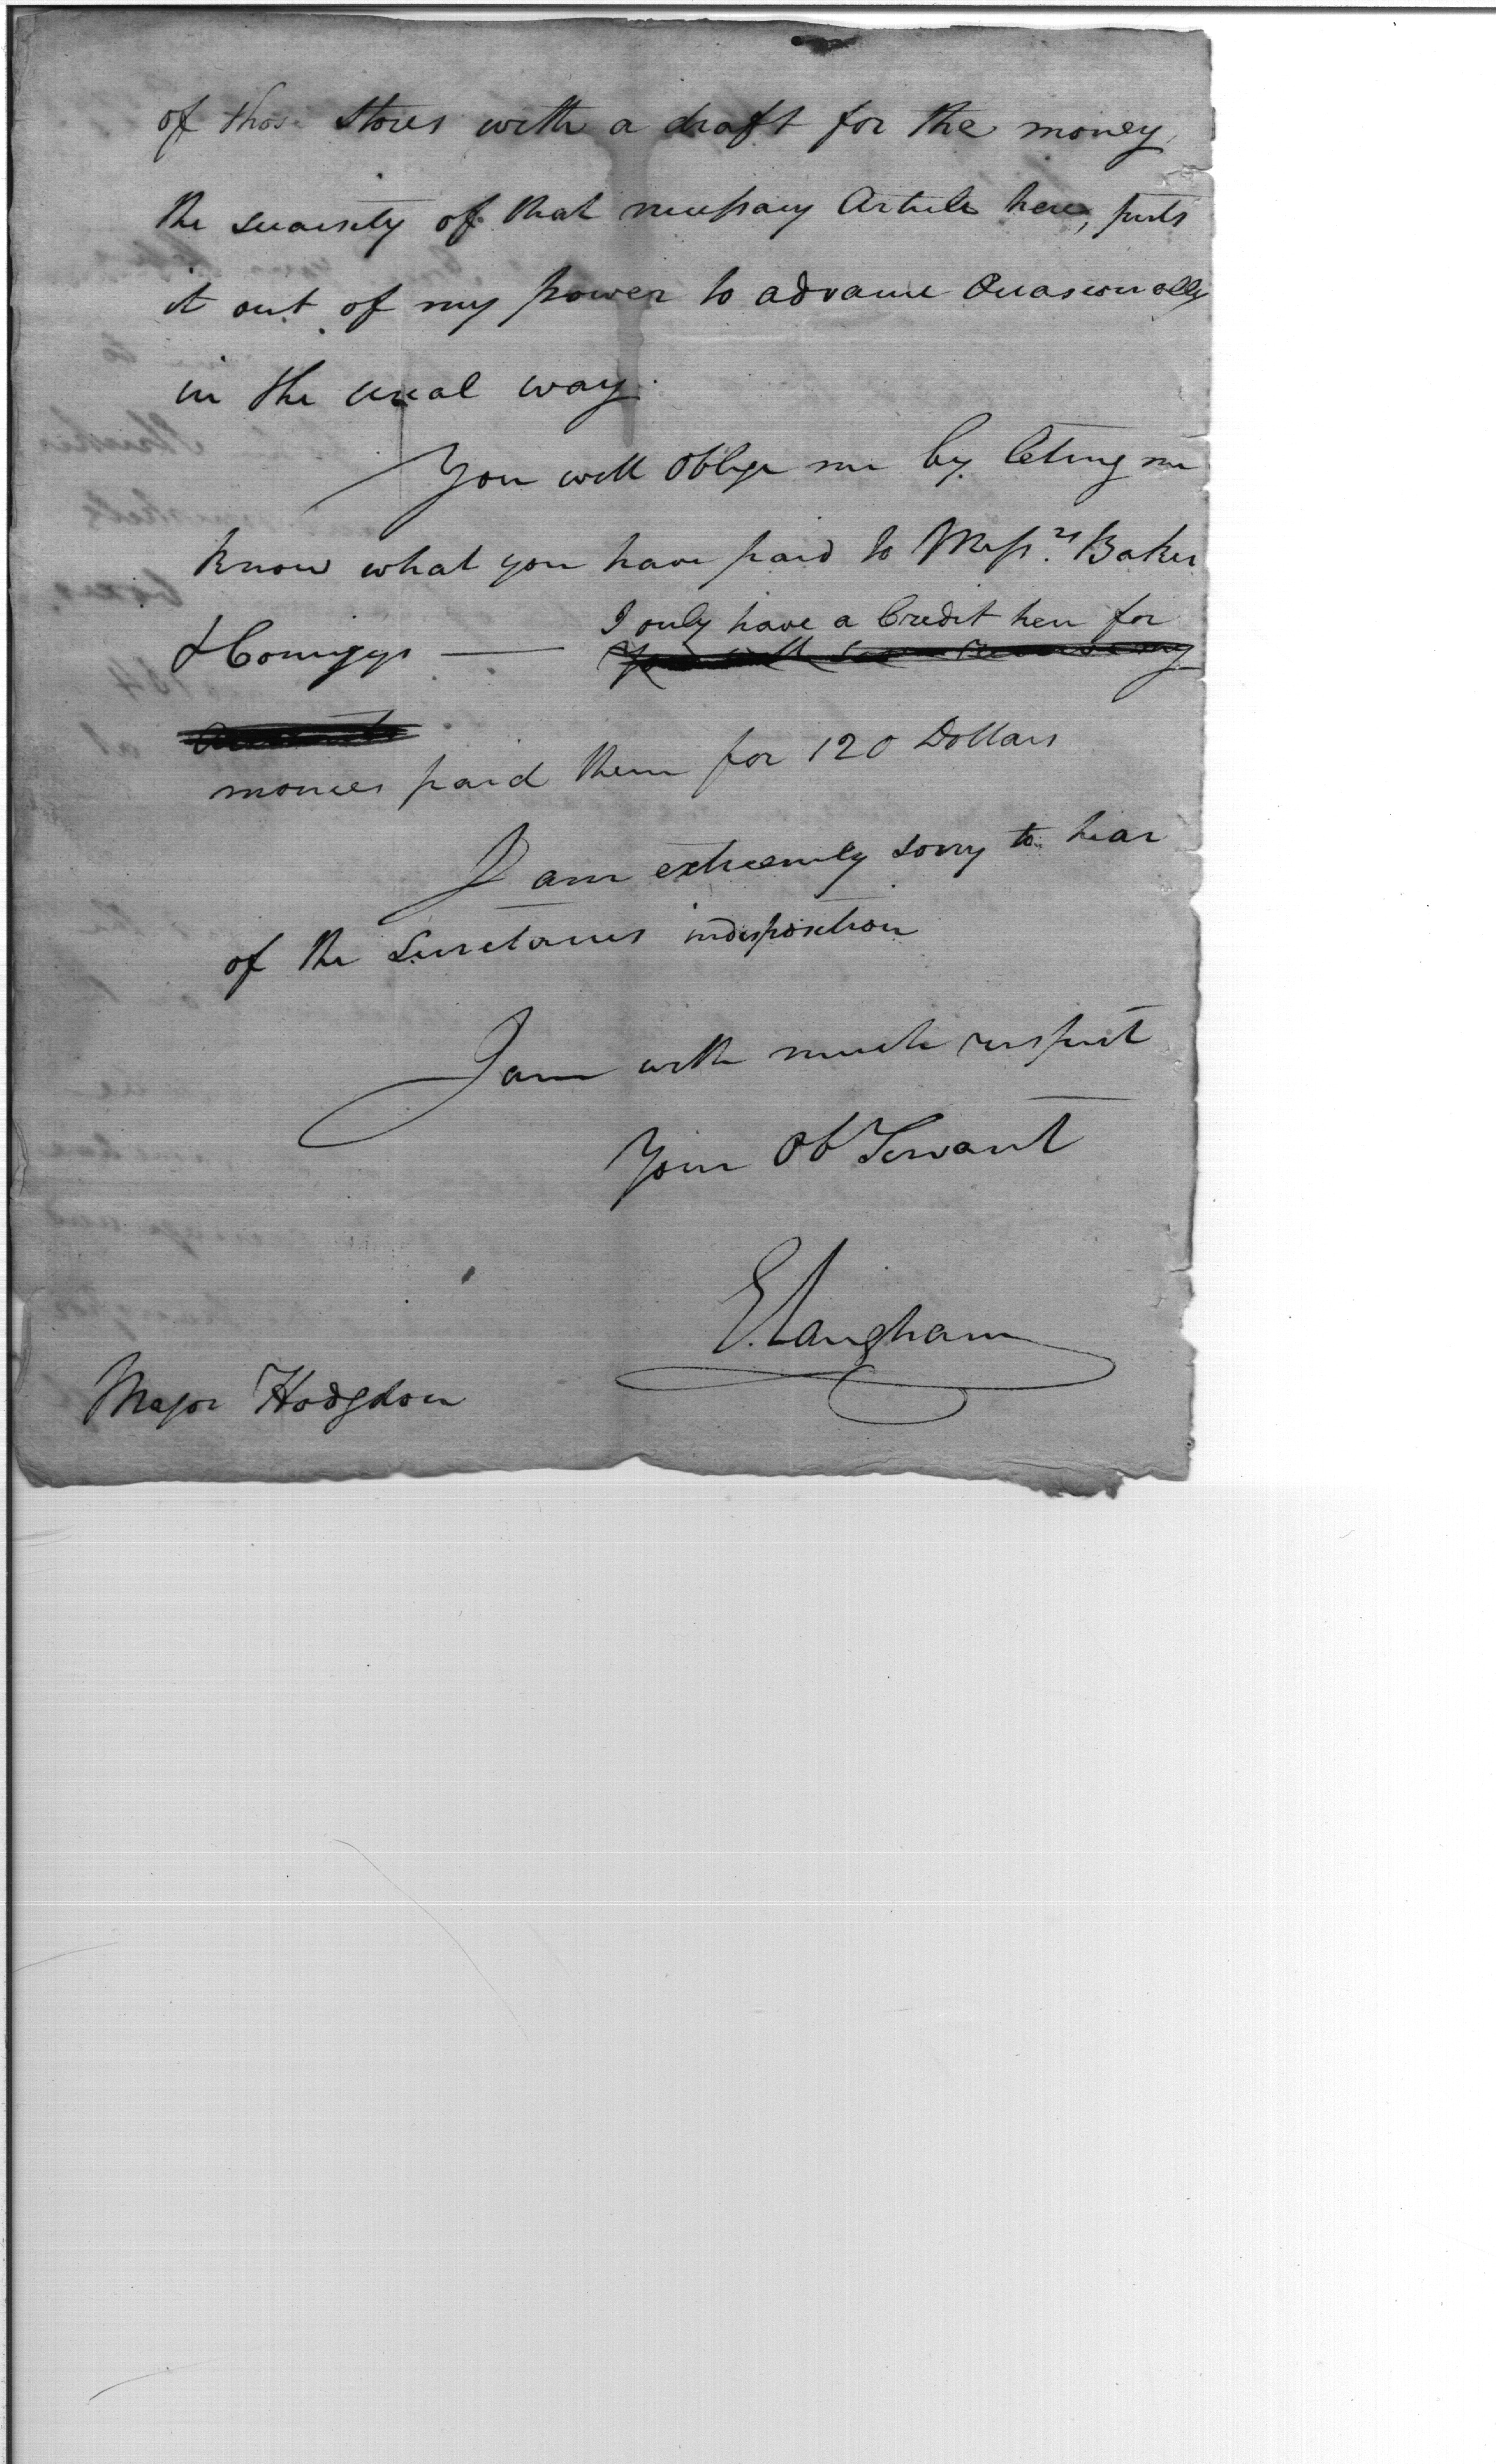 of those stores with a draft for the money,
the scarsity of that necessary Article here, puts
it out of my power to advance Occasionally
in the usual way.
You will oblige me by leting me
know what you have paid to Mess.rs Baker
& Comigys — I only have a Credit here for
monies paid them for 120 Dollars
I am extreemly sorry to hear
of the Secretaries indisposition
I am with much respect
Your Ob Servant
E. Langham
Major Hodgdon